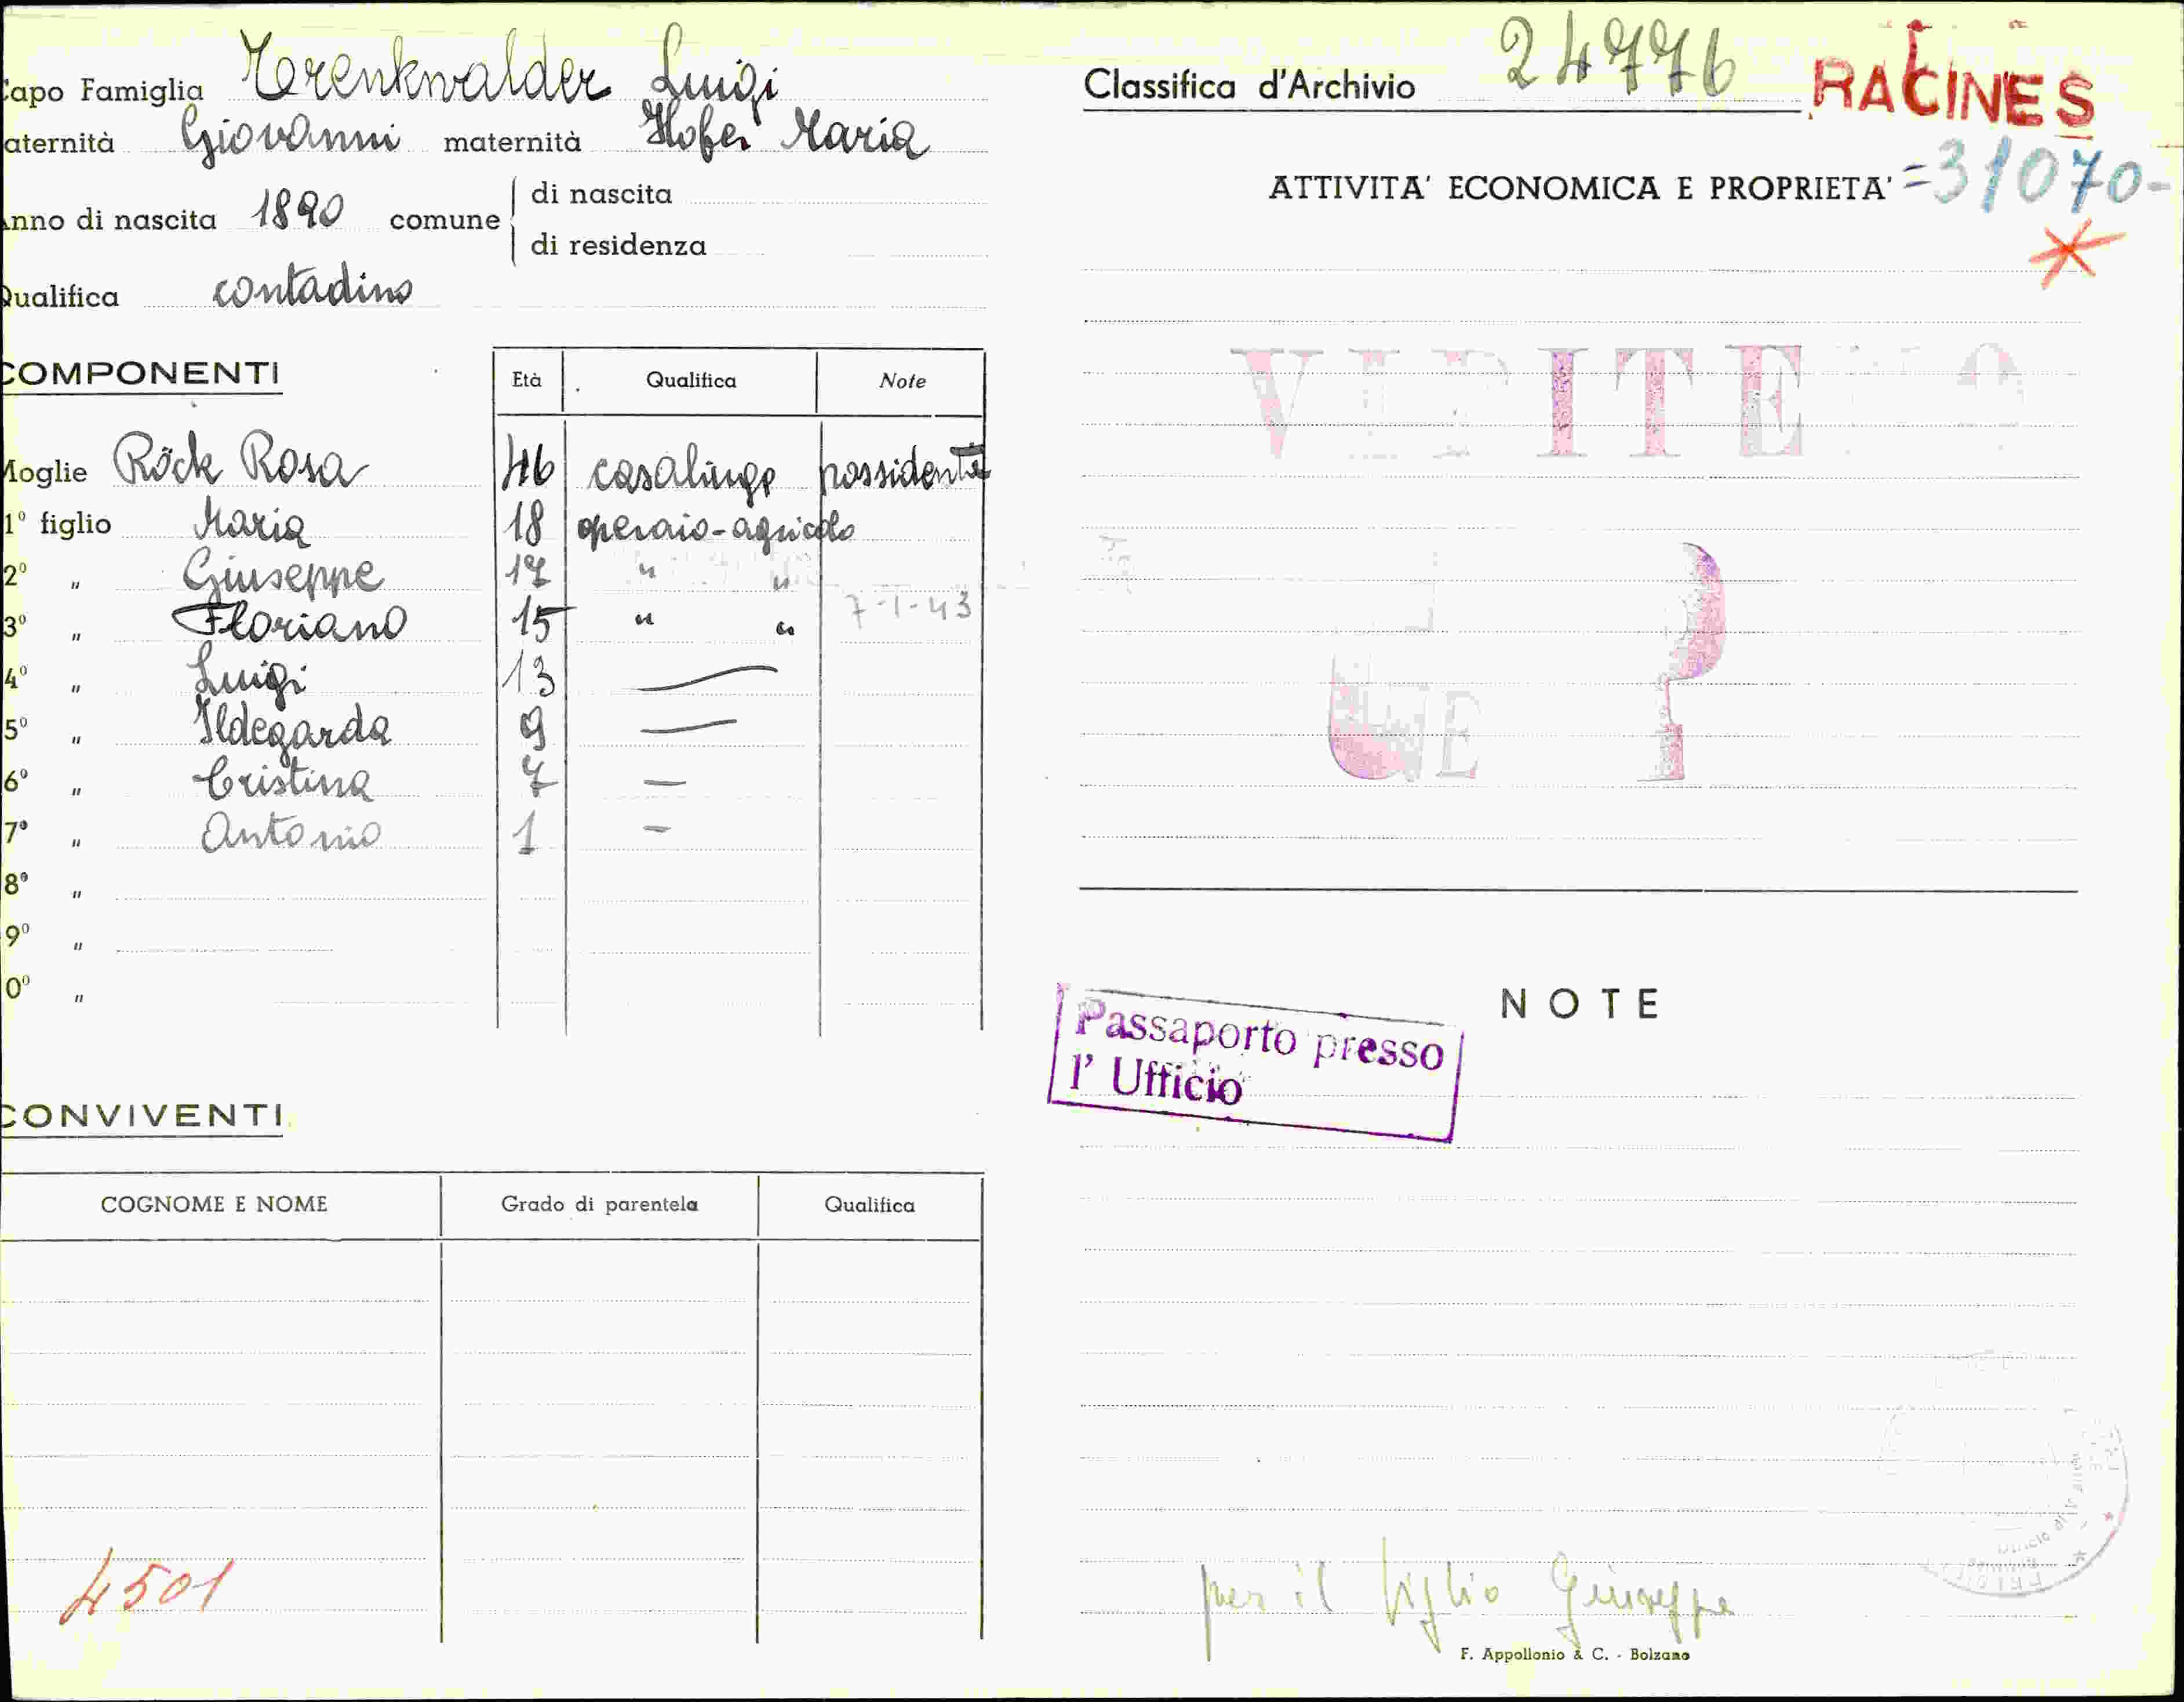 apo Famiglia Trenkwalder Luigi
aternità Giovanni maternità Hofer Maria
nno di nascita 1890 comune
di nascita
di residenza
Qualifica contadino
COMPONENTI
Età Qualifica Note
Moglie Röck Rosa 46 casalinga possidente
1º figlio Maria 18 operaio-agricolo
2º " Giuseppe 17 " "
3º " Floriano 15 " " 7-1-43
4º " Luigi 13 —
5º " Ildegarda 9 —
6º " Cristina 7 —
7º " Antonio 1 —
8º "
9º "
0º "
CONVIVENTI
COGNOME E NOME Grado di parentela Qualifica
4501
Classifica d'Archivio 24776 RACINES
ATTIVITA' ECONOMICA E PROPRIETA' =31070-
VIPITENO
NOTE
Passaporto presso
l' Ufficio
per il figlio Giuseppe
F. Appollonio & C. - Bolzano